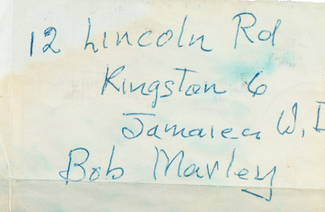 12 Lincoln Rd
Kingston 6
Jamaica W. I
Bob Marley